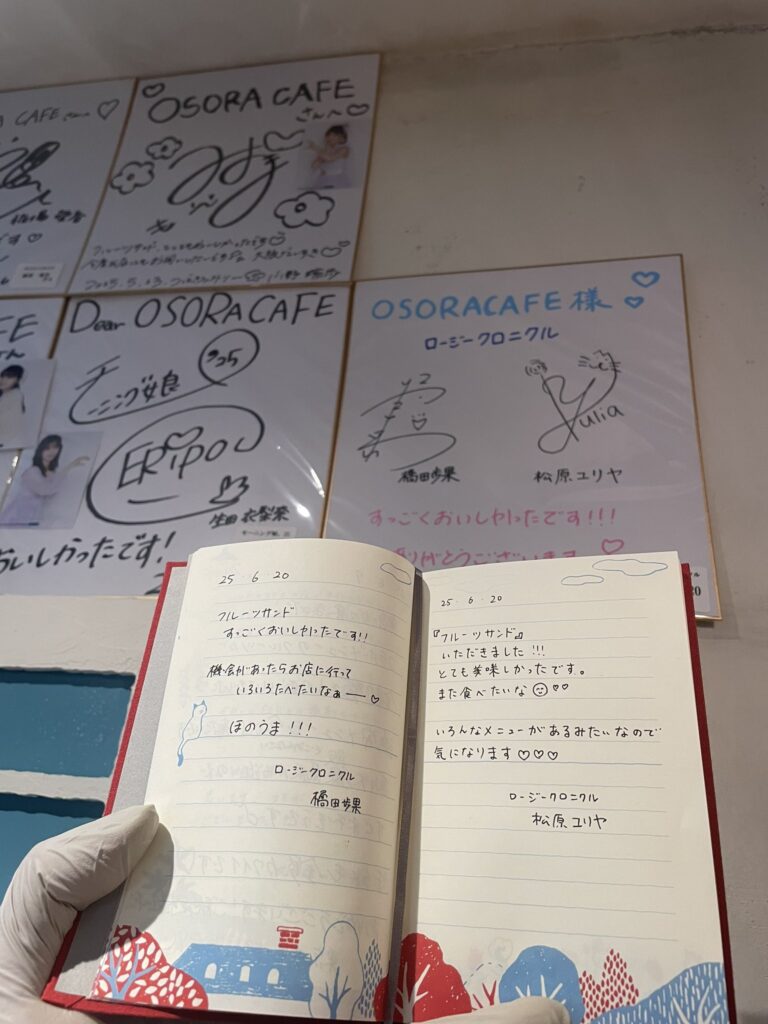 CAFE
OSORA CAFE
さんへ
フルーツサンド、とってもおいしかったです
2025.5.03.
Dear OSORA CAFE
モーニング娘。
'25
ERIPON
生田衣梨奈
モーニング娘。'25
おいしかったです!
OSORACAFE 様
ロージークロニクル
Yulia
橋田歩果
松原ユリヤ
すっごくおいしかったです!!!
ありがとうございます
25.6.20
フルーツサンド
すっごくおいしかったです!!
機会があったらお店に行って
いろいろたべたいなぁー♡
ほのうま!!!
ロージークロニクル
橋田歩果
25.6.20
『フルーツサンド』
いただきました!!!
とても美味しかったです。
また食べたいな☺♡♡
いろんなメニューがあるみたいなので
気になります♡♡♡
ロージークロニクル
松原ユリヤ